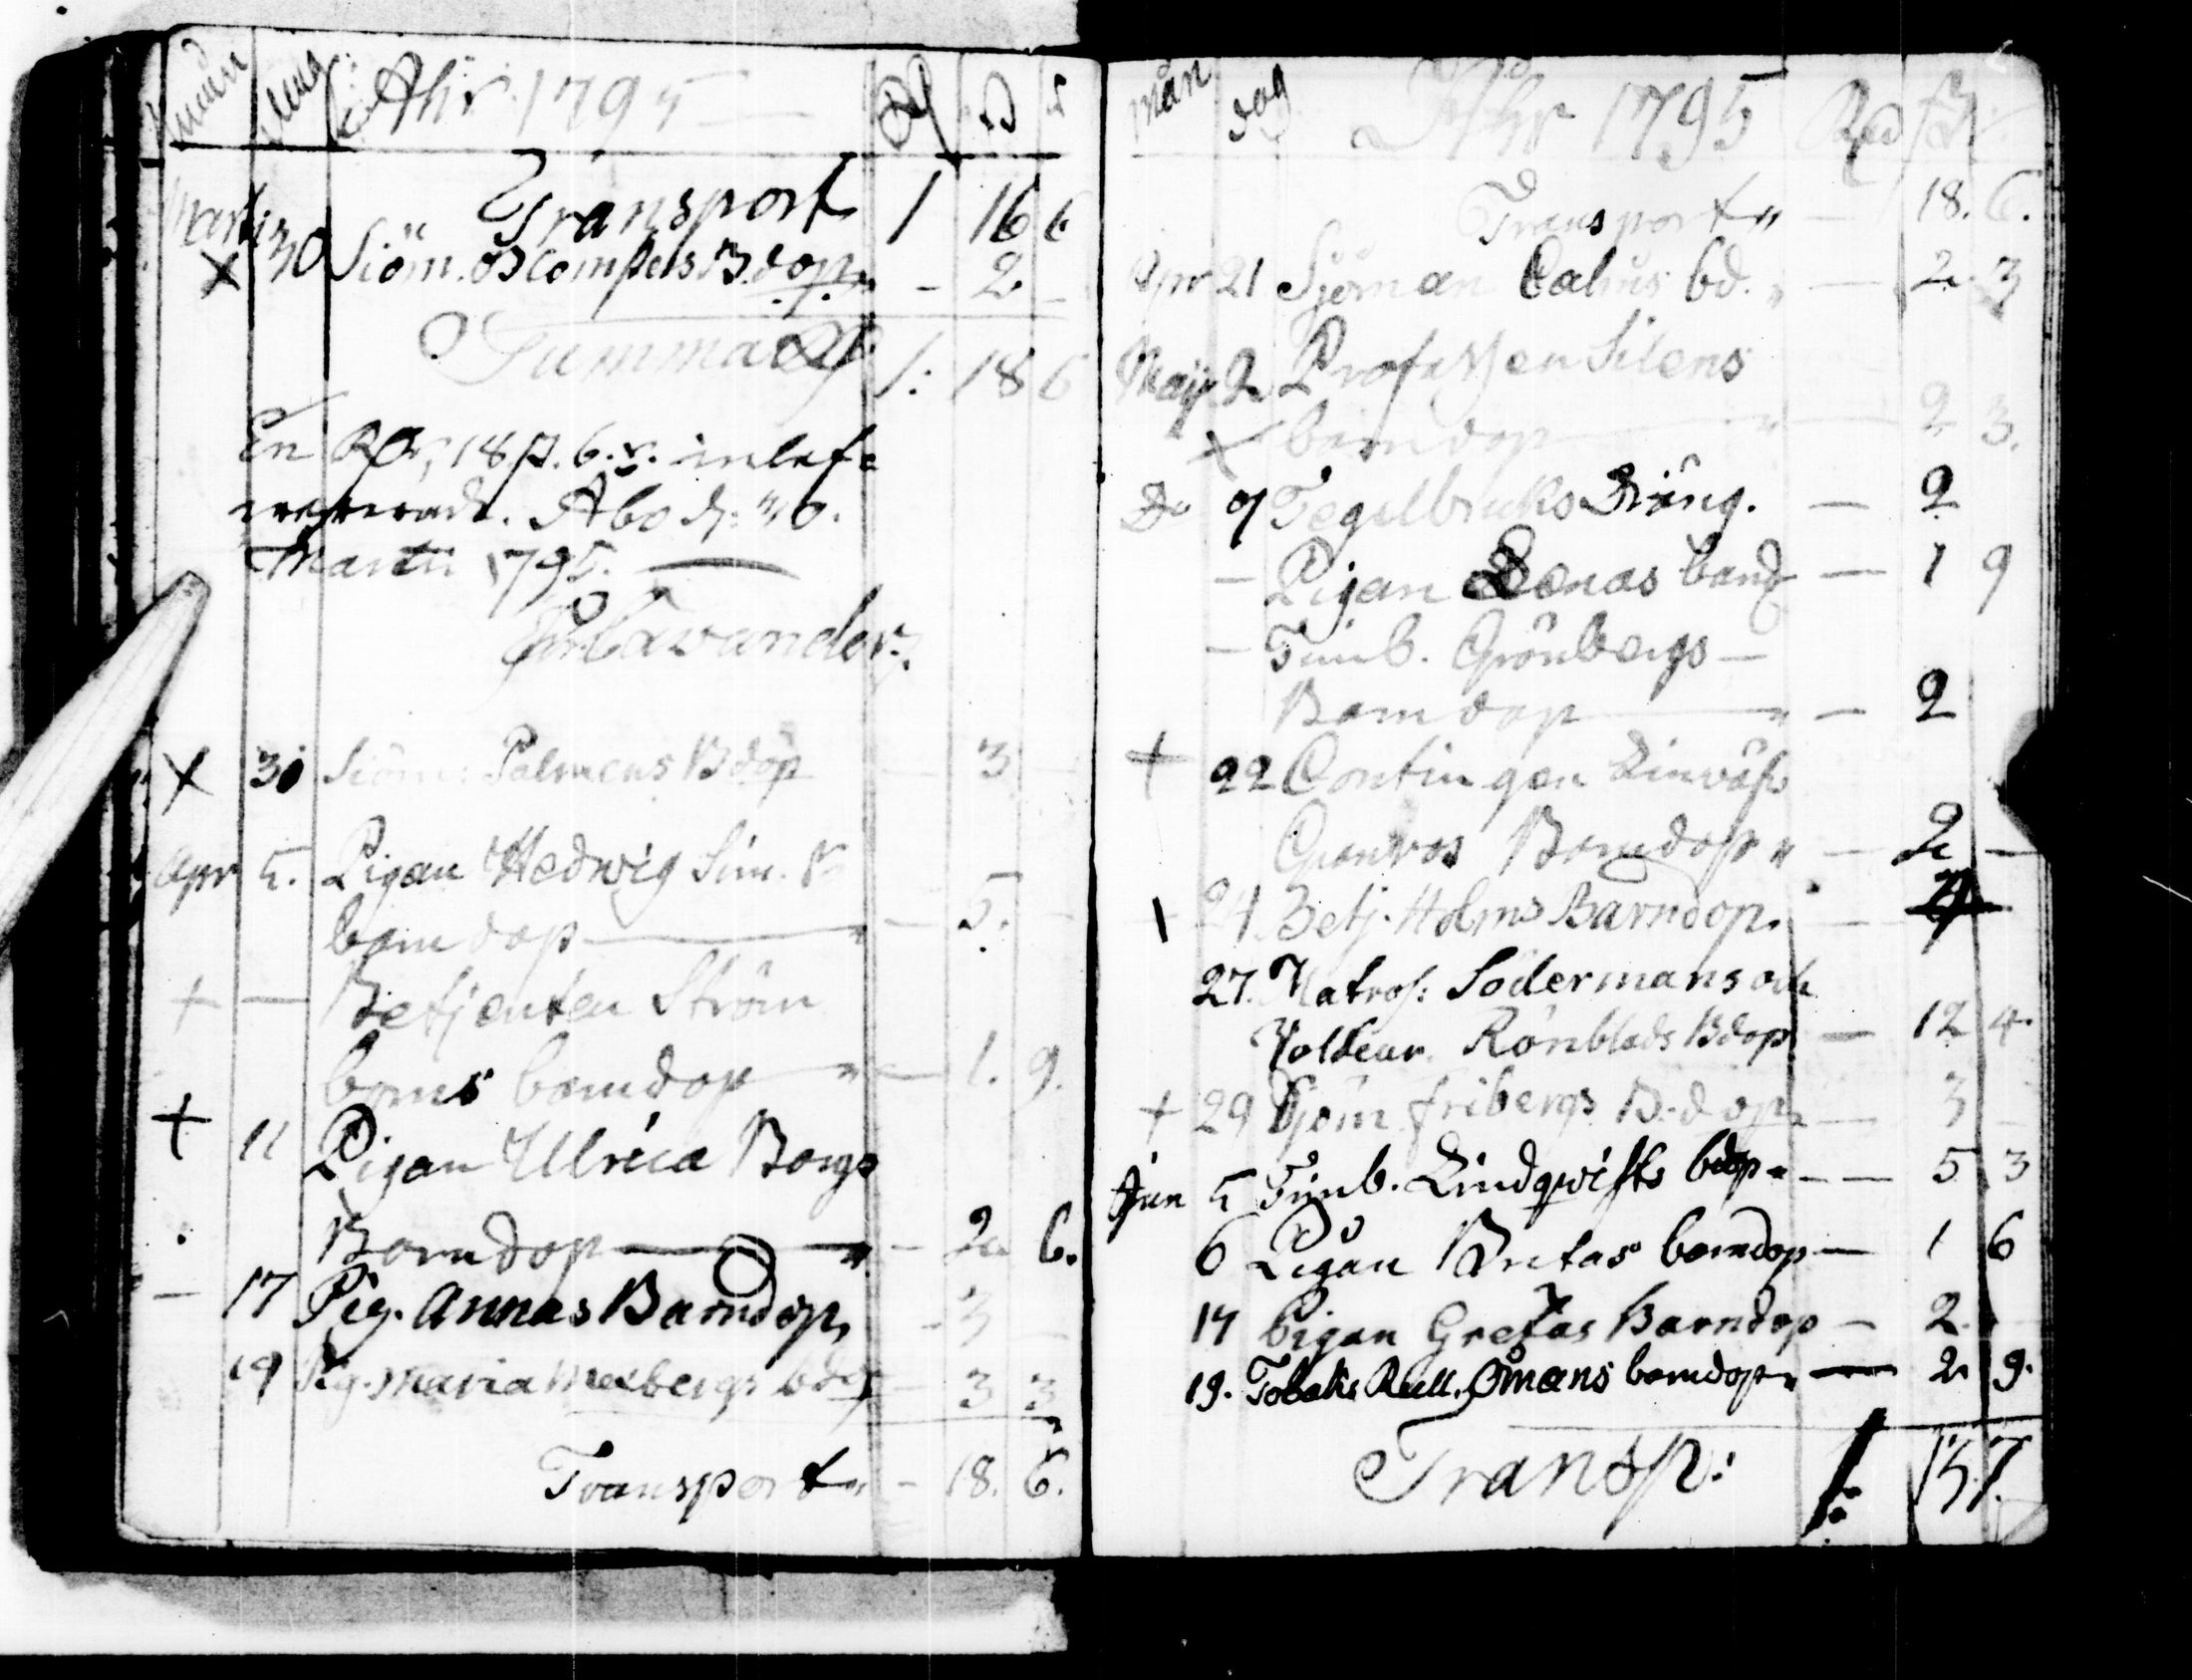 mån dag Ahr 1795 — Rd ß r
Transport 1 16 6
Marti 30 Siöm. Blompels B.dop — 2 —
Summa Rd 1: 18 6
En Rdr, 18 ß. 6. r. inlef=
vererade. Åbo d: 30.
Martii 1795. —
X 30 Siöm: Palmens Bdop — 3 —
Apr 5. Pigan Hedwig
barndop — 5.
+ — Betjenten Ström
boms barndop — 1. 9.
+ 11 Pigan Ulrica Borgs
Barndop — 2 6.
— 17 Pig. Annas Barndop, - 3 —
19 Pig. Maria bdop 3 3
Transport — 18. 6.
mån dag Ahr 1795 Rd ß
Transport — 18. 6.
Apr 21 Sjöman Calius bd. — 2 3
Maji 2 Silens
X barndop — 2 3.
Do 9 Tegelbruks Dräng. — 2
— Pigan Lenas barnd — 1 9
— Timb. Grönbergs —
Barndop — 2
+ 22
Barndop — 2 —
24 Betj. Holms Barndop. —
27. Matros: Södermans och
Rönblads Bdop — 12 4.
+ 29 Sjöm fribergs B.dop — 3 —
Jun 5 Timb. Lindqvists bdop — 5 3
6 Pigan Britas barndop — 1 6
14 Pigan Gretas Barndop — 2.
19. Tobaks Rull. Ömans barndop — 2 9.
Transp: 1: 13 7.